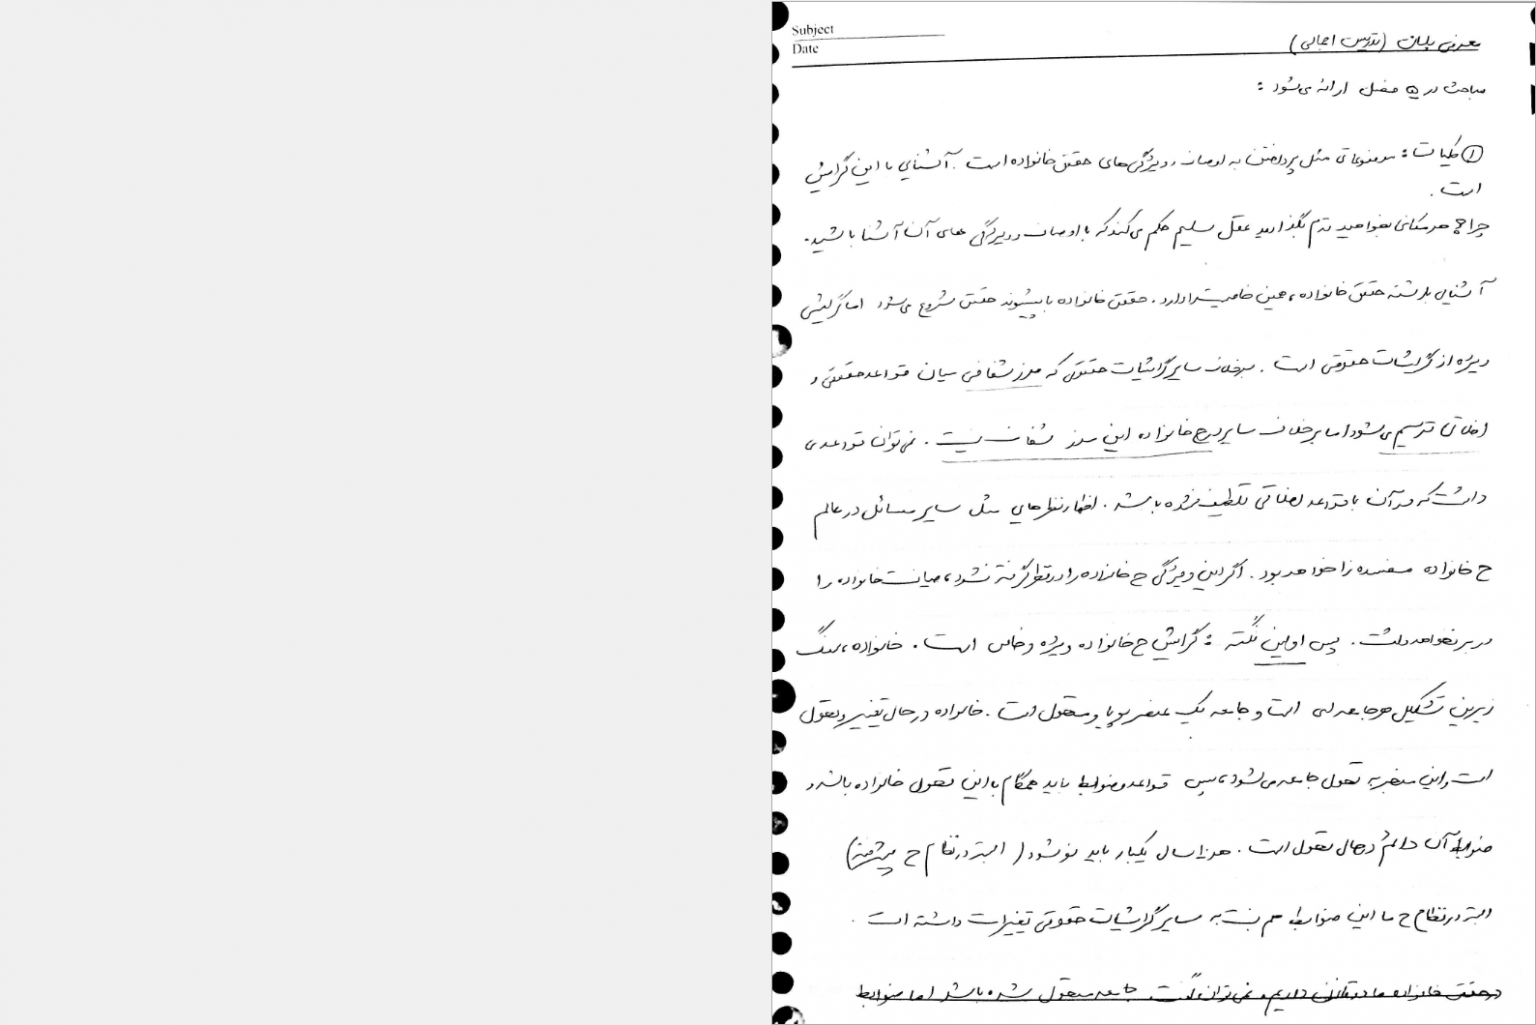 Subject
Date
معرفی پلان (تدریس اجمالی)
مباحث در ۵ فصل ارائه می‌شود :
① کلیات : موضوعاتی مثل پرداختن به اوصاف و ویژگی‌های حقوق خانواده است . آشنایی با این گرایش
است .
چرا؟ هر مکانی بخواهید قدم بگذارید عقل سلیم حکم می‌کند که با اوصاف و ویژگی های آن آشنا باشید.
آشنایی با رشته حقوق خانواده ، همین خاصیت را دارد . حقوق خانواده با پیشوند حقوق شروع می‌شود اما گرایشی
ویژه از گرایشات حقوقی است . برخلاف سایر گرایشات حقوقی که مرز شفافی میان قواعد حقوقی و
اخلاقی ترسیم می‌شود اما برخلاف سایر در ح خانواده این مرز شفاف نیست . نمی‌توان قواعدی
داشت که در آن با قواعد اخلاقی تلطیف نشده باشد . اظهارنظرهایی مثل سایر مسائل در عالم
ح خانواده مفسده زا خواهد بود . اگر این ویژگی ح خانواده را در نظر گرفته نشود ، صیانت خانواده را
در بر نخواهد داشت . پس اولین نکته : گرایش ح خانواده ویژه و خاص است . خانواده ، سنگ
زیرین تشکیل هر جامعه ای است و جامعه یک عنصر پویا و متحول است . خانواده در حال تغییر و تحول
است و این منجر به تحول جامعه می‌شود ، پس قواعد و ضوابط باید همگام با این تحول خانواده باشد و
ضوابط آن دائم در حال تحول است . هر ۱۰ سال یکبار باید نو شود ( البته در نظام ح پیشرفته)
البته در نظام ح ما این ضوابط هم نسبت به سایر گرایشات حقوقی تغییرات داشته است .
در حقوق خانواده ما در قانونی داریم و نمی توان گفت جامعه متحول شده باشد اما ضوابط